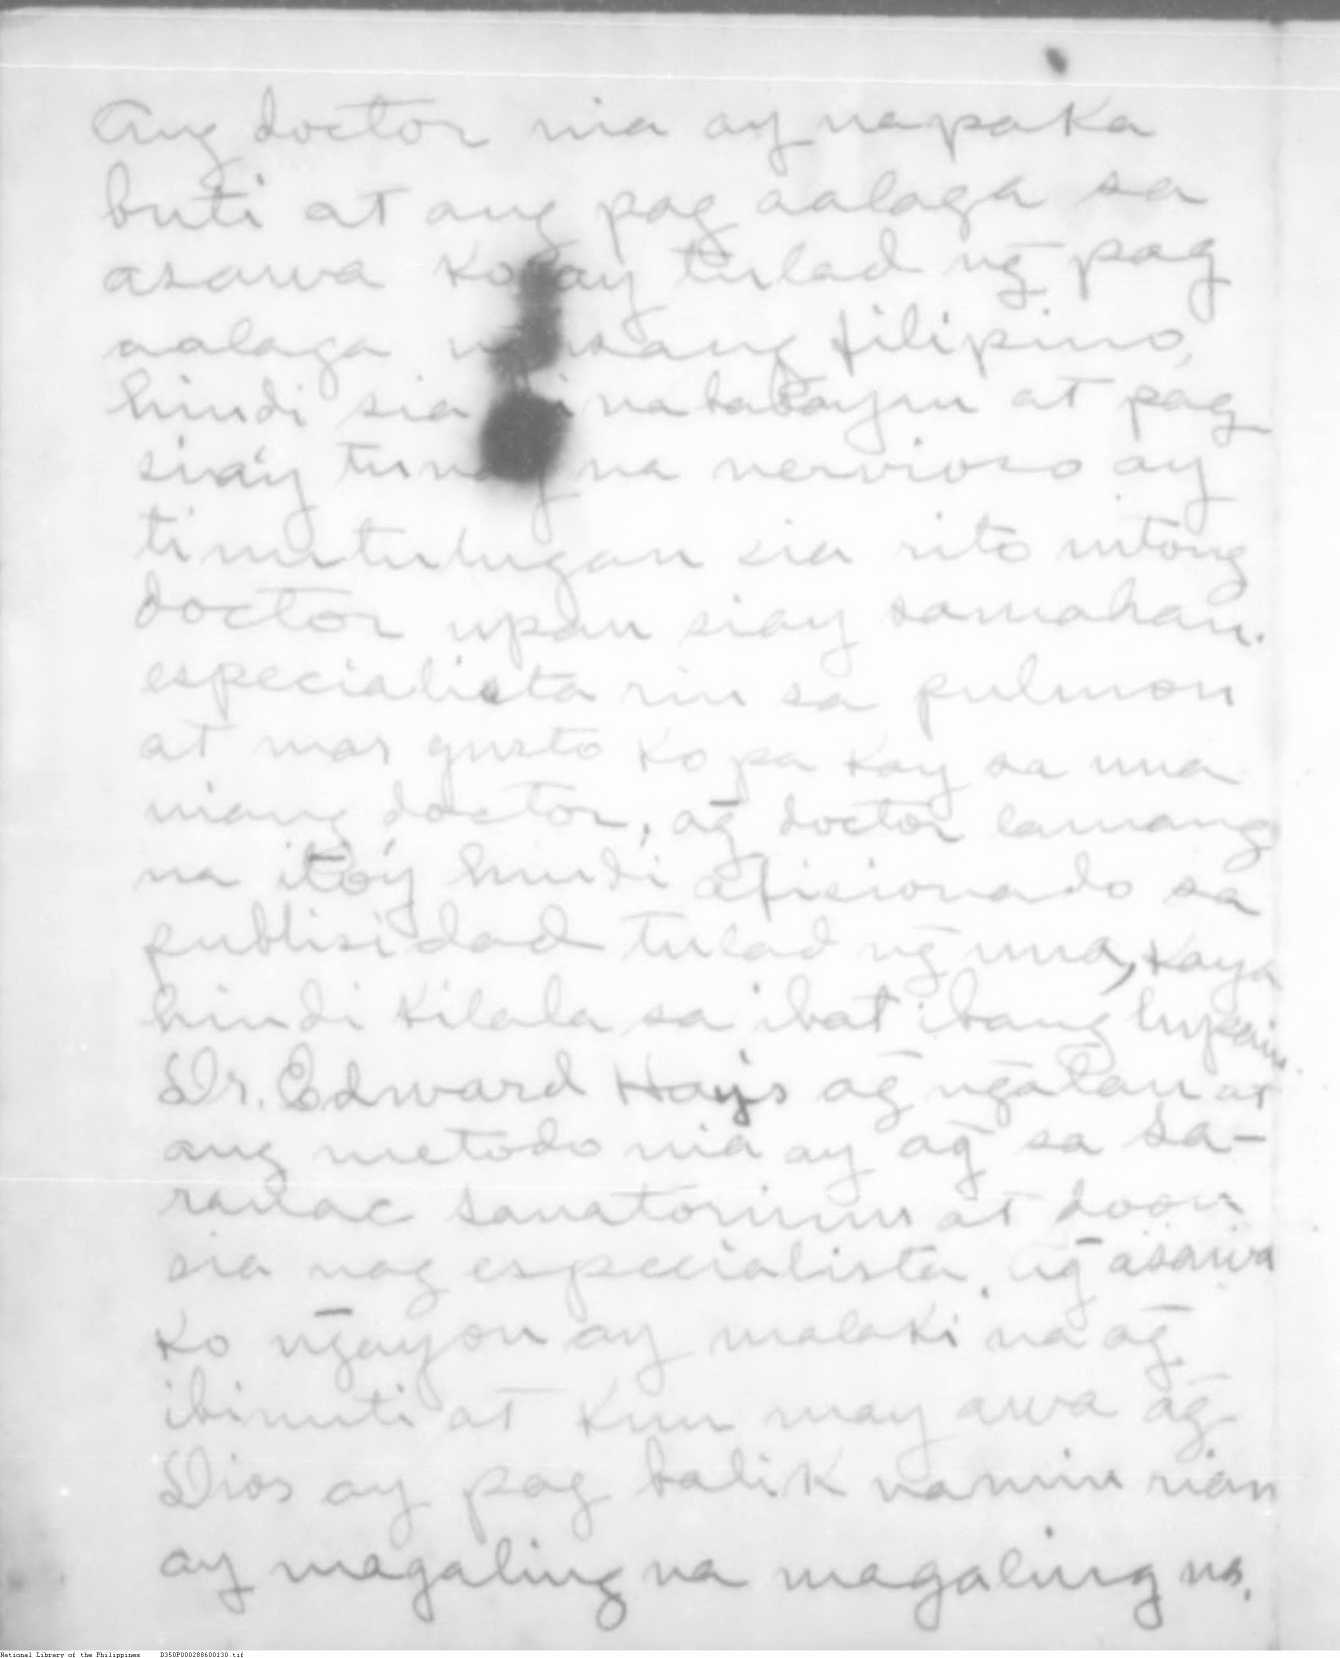 Ang doctor nia ay napaka
buti at ang pag aalaga sa
asawa ko ay tulad ng̃ pag
aalaga isang filipino,
hindi sia na babayan at pag
sia'y na nervioso ay
tinutulugan sia rito nitong
doctor upan siay samahan.
especialista rin sa pulmon
at mas gusto ko pa kay sa una
niang doctor, ag̃ doctor lamang
na ito'y hindi aficionado sa
publisidad tulad ng̃ una, kaya
hindi kilala sa ibat ibang lupain.
Dr. Edward Hays ag̃ ng̃alan at
ang metodo nia ay ag̃ sa Sa-
ranac Sanatorium at doon
sia nag especialista. Ag̃ asawa
ko ng̃ayon ay malaki na ag̃
ibinuti at kun may awa ag̃
Dios ay pag balik namin rian
ay magaling na magaling na.
National Library of the Philippines D350P000288600130.tif